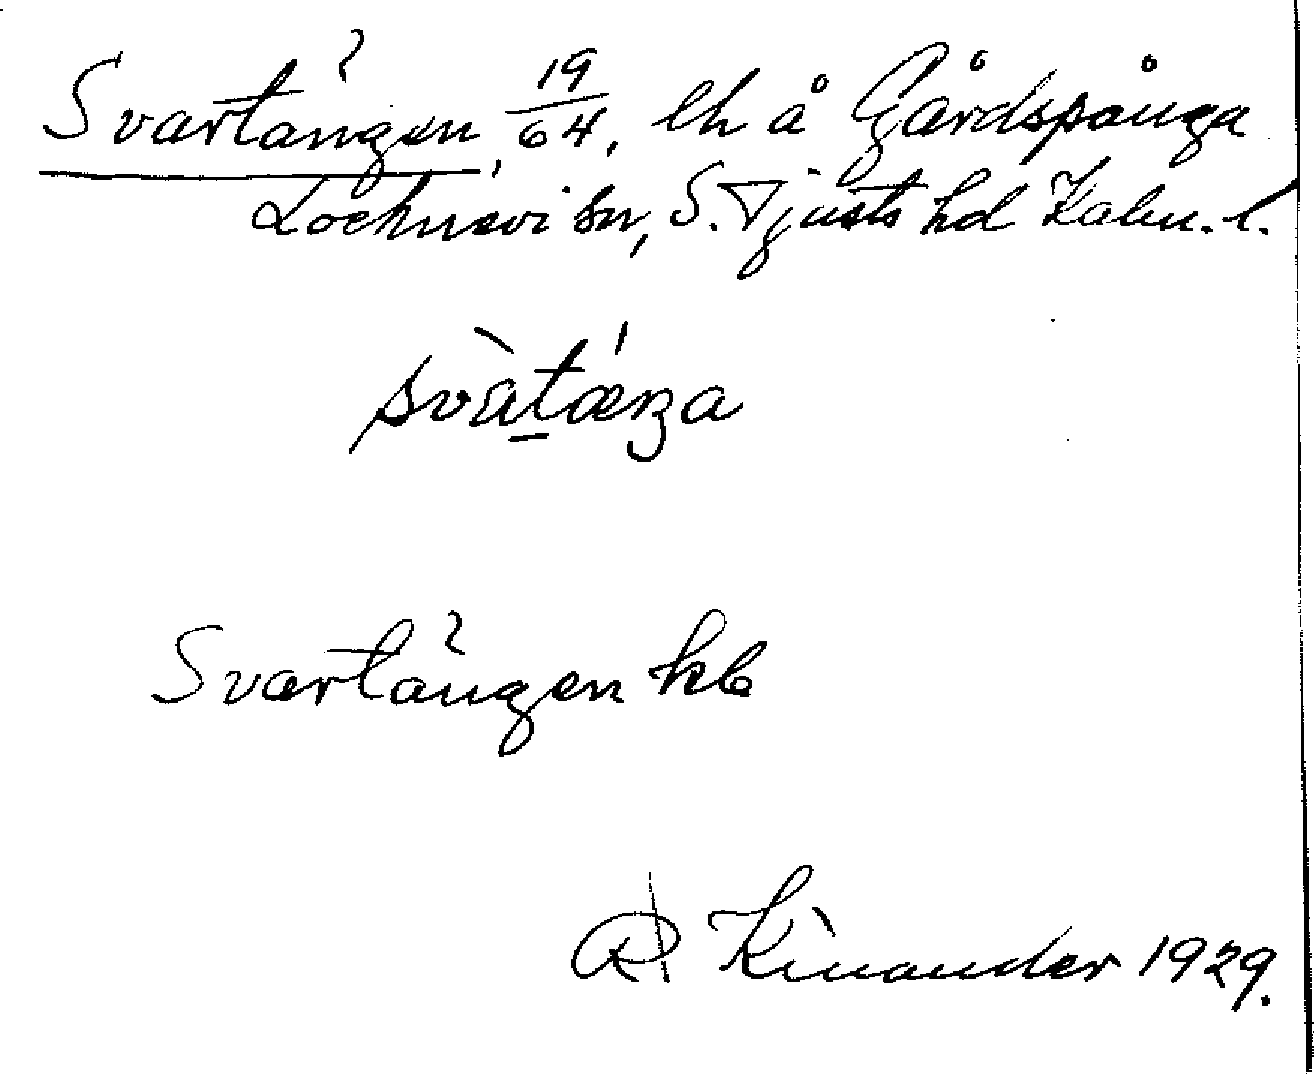 Svartängen, 19/64, lh å Gårdspånga
Locknevi sn, S. Tjusts hd Kalm. l.
svàtǽŋa
Svartängen kb
R Kinander 1929.